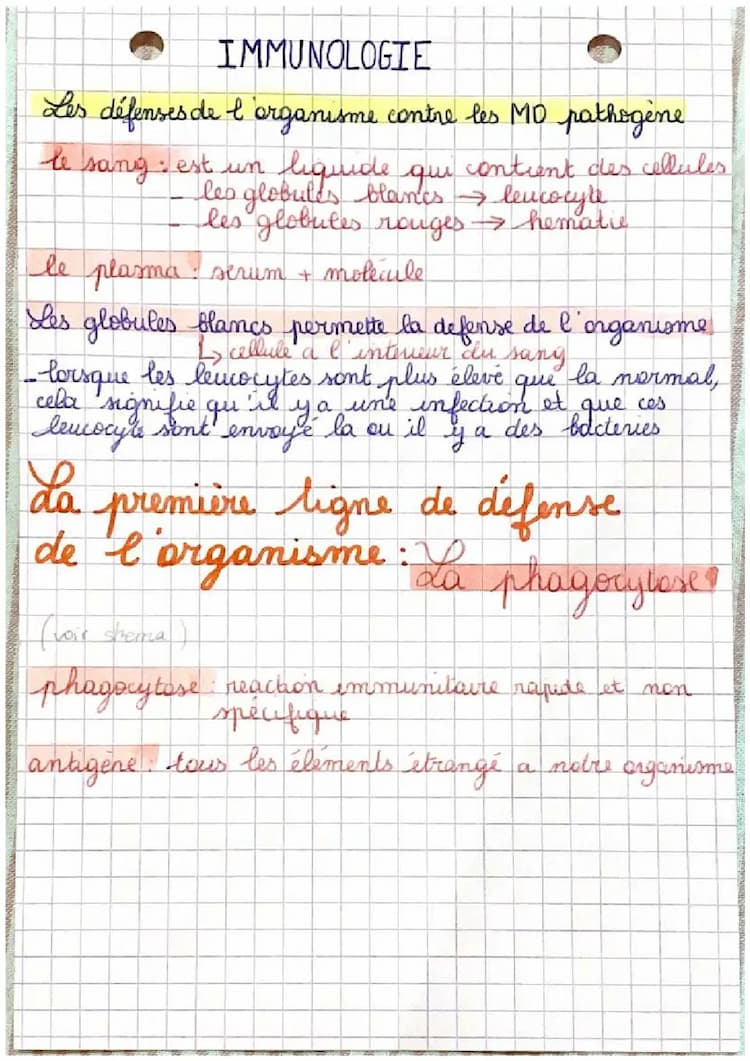 IMMUNOLOGIE
Les défenses de l'organisme contre les MO pathogène
le sang : est un liquide qui contient des cellules
- les globules blancs → leucocyte
- les globules rouges → hematie
le plasma : serum + molécule
Les globules blancs permette la defense de l'organisme
↳ cellule a l'interieur du sang
- lorsque les leucocytes sont plus élevé que la normal,
cela signifie qu'il y a une infection et que ces
leucocyte sont envoyé la ou il y a des bacteries
La première ligne de défense
de l'organisme :
La phagocytose
(voir shema)
phagocytose : reaction immunitaire rapide et non
spécifique
antigène : tous les éléments étrangé a notre organisme